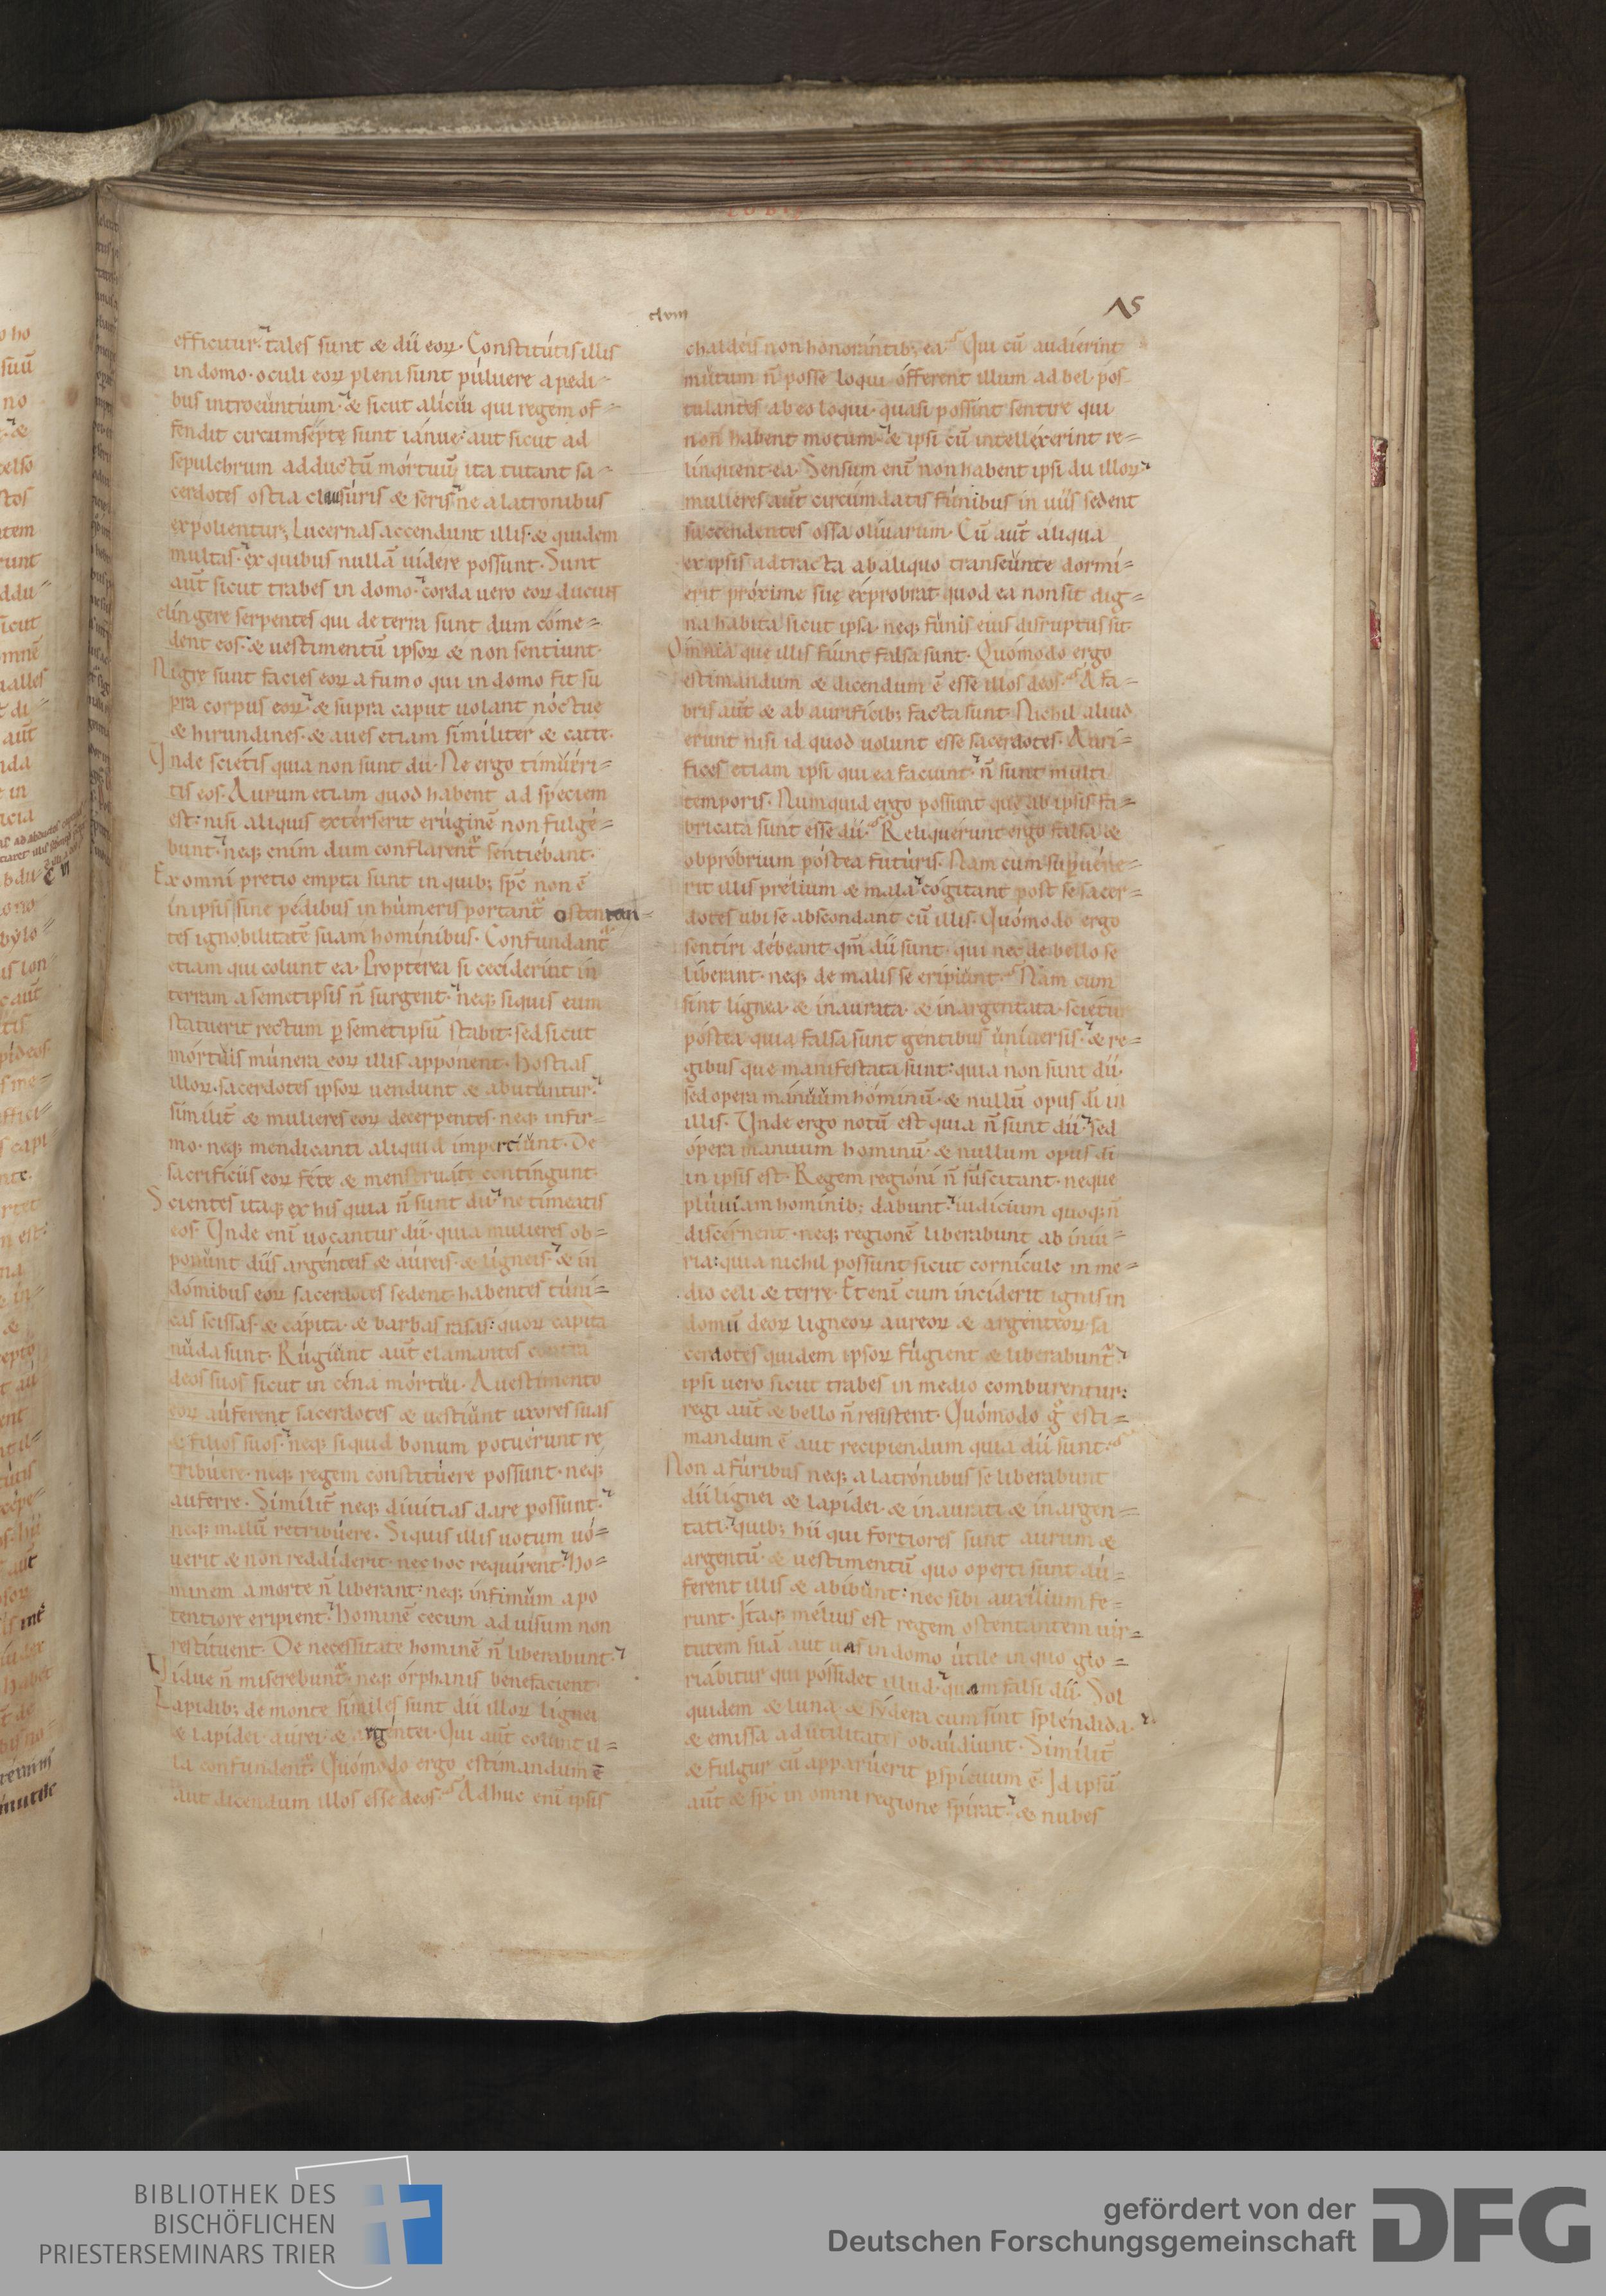 clviii
efficitur. tales sunt & dii eoꝝ. Constitútis illis
in domo. oculi eoꝝ pleni sunt púluere a pedi-
bus introeúntium. & sicut alicúi qui regem of-
fendit circumsépte sunt iánue. aut sicut ad
sepulchrum adductū mórtuū ita tutant sa-
cerdotes ostia clausúris & seris ne a latronibus
expolientur; Lucernas accendunt illis. & quidem
multas. ex quibus nullā uidere possunt. Sunt
aut̄ sicut trabes in domo. corda uero eoꝝ dicunt
elíngere serpentes qui de terra sunt dum cóme=
dent eos. & uestimentū ipsoꝝ & non sentiunt.
Nigre sunt facies eoꝝ a fumo qui in domo fit su
pra corpus eoꝝ. & supra caput uolant nóctue
& hirundines. & aues etiam similiter & catte.
Unde sciétis quia non sunt dii. Ne ergo timúeri=
tis eos. Aurum etiam quod habent ad speciem
est: nisi aliquis extérserit erúginē non fulgé=
bunt. neq; enim dum conflarent᷑ sentiébant.
Ex omni pretio empta sunt in quib; spc̄ non ē
in ipsis sine pédibus in húmeris portant᷑ ostentan=
tes ignobilitatē suam homínibus. Confundant᷑
etiam qui colunt ea. Propterea si cecíderint in
terram a semetipsis n̄ surgent. neq; siquis eum
statuerit rectum ꝑ semetipsū stabit: sed sicut
mórtuis múnera eoꝝ illis apponent. hostias
illoꝝ. sacerdotes ipsoꝝ uendunt & abutúntur.
similit̄ & mulieres eoꝝ decerpentes. neq; infir=
mo. neq; mendicanti aliquid impertiúnt. De
sacrificiis eoꝝ féte & menstruáte contíngunt.
Scientes itaq; ex his quia n̄ sunt dii. ne timeatis
eos. Unde eni uocantur dii. quia mulieres ob=
ponúnt diis argénteis & áureis. & lígneis. & in
dómibus eoꝝ sacerdotes sedent. habentes túni=
cas scissas. & cápita. & barbas rasas: quoꝝ capita
núda sunt. Rúgiunt aut̄ clamantes contra
deos suos sicut in céna mórtui. A uestimento
eoꝝ áuferent sacerdotes & uestiunt uxores suas
& filios suos. neq; siquid bonum potuérunt re
tribúere. neq; regem constitúere possunt. neq;
auferre. Similit̄ neq; diuítias dare possunt.
neq; malū retribúere. Siquis illis uotum uó=
uerit & non reddíderit. nec hoc requírent. Ho=
minem a morte n̄ liberant. neq; infimúm a po
tentiore eripient. hominē cecum ad uisum non
restítuent. De necessitate hominē n̄ liberabunt.
Uídue n̄ miserebunt᷑. neq; órphanis benefacient.
Lapidib; de monte símiles sunt dii illoꝝ lignei
& lapídei. aurei. & argéntei. Qui aut̄ colunt il=
la confundent᷑. Quómodo ergo estimandum ē
aut dicendum illos esse deos. Adhuc eni ipsis
Λ5
chaldeis non honorántib; ea. Qui cū audíerint
mútum n̄ posse loqui. ófferent illum ad bel. pos
tulantes ab eo loqui. quasi possint sentire qui
non habent motum. & ipsi cū intelléxerint re=
línquent ea. Sensum eni non habent ipsi dii illoꝝ.
mulíeres aut̄ circúmdatis fúnibus in uiis sedent
succendentes ossa olíuarum. Cū aut̄ aliqua
ex ipsis adtracta ab aliquo transeúnte dormí=
erit próxime sue éxprobrat. quod ea non sit dig=
na hábita sicut ipsa. neq; fúnis eius disruptus sit.
Omnia que illis fíunt falsa sunt. Quómodo ergo
estimandum & dicendum ē esse illos deos. A fa=
bris aut̄ & ab aurificib; facta sunt. Nichil aliud
erunt nisi id quod uolunt esse sacerdotes. Auri=
fices etiam ipsi qui ea faciunt. n̄ sunt multi
temporis. Numquid ergo possunt que ab ipsis fa=
bricata sunt esse dii. Reliquérunt ergo falsa &
obpróbrium póstea futúris. Nam cum supuéne=
rit illis prélium & mala cógitant post se sacer=
dotes ubi se abscondant cū illis. Quómodo ergo
sentíri débeant qm̄ dii sunt. qui nec de bello se
líberant. neq; de malis se erípiunt. Nam cum
sint lígnea. & inaurata. & inargentata. scietur
póstea quia falsa sunt gentibus uníuersis. & re=
gibus que manifestata sunt: quia non sunt dii.
sed opera mánuum hóminū. & nullū opus di in
illis. Unde ergo notū est quia n̄ sunt dii. sed
ópera manuum hominū. & nullum opus di
in ipsis est. Regem regióni n̄ súscitant. neque
plúuiam hominib; dabunt. iudícium quoq; n̄
discérnent. neq; regionē liberabunt ab iniú=
ria: quia nichil possunt sicut cornícule in me=
dio celi & terre. Et eni cum incíderit ignis in
domū deoꝝ ligneoꝝ aureoꝝ & argénteoꝝ sa
cerdotes quidem ipsoꝝ fúgient & liberabunt᷑.
ipsi uero sicut trabes in medio comburentur:
regi aut̄ & bello n̄ resístent. Quómodo g̊ esti=
mandum ē aut recipiendum quia dii sunt.
Non a fúribus neq; a latrónibus se liberabunt
dii lignei & lapídei. & inaurati & inargen=
tati. quib; hii qui fortiores sunt aurum &
argentū. & uestimentū quo operti sunt aú=
ferent illis & abibunt: nec sibi auxílium fe=
runt. Itaq; mélius est regem ostentantem uir=
tutem suā aut uas in domo útile in quo glo=
riábitur qui póssidet illud. quam falsi dii. Sol
quidem & luna & sýdera cum sint spléndida.
& emissa ad utilitates obaúdiunt. Similit̄
& fulgur cū apparúerit ꝑspícuum ē. Id ipsū
aut̄ & spc̄ in omni regione spirat. & nubes
BIBLIOTHEK DES
BISCHÖFLICHEN
PRIESTERSEMINARS TRIER
gefördert von der
Deutschen Forschungsgemeinschaft
DFG